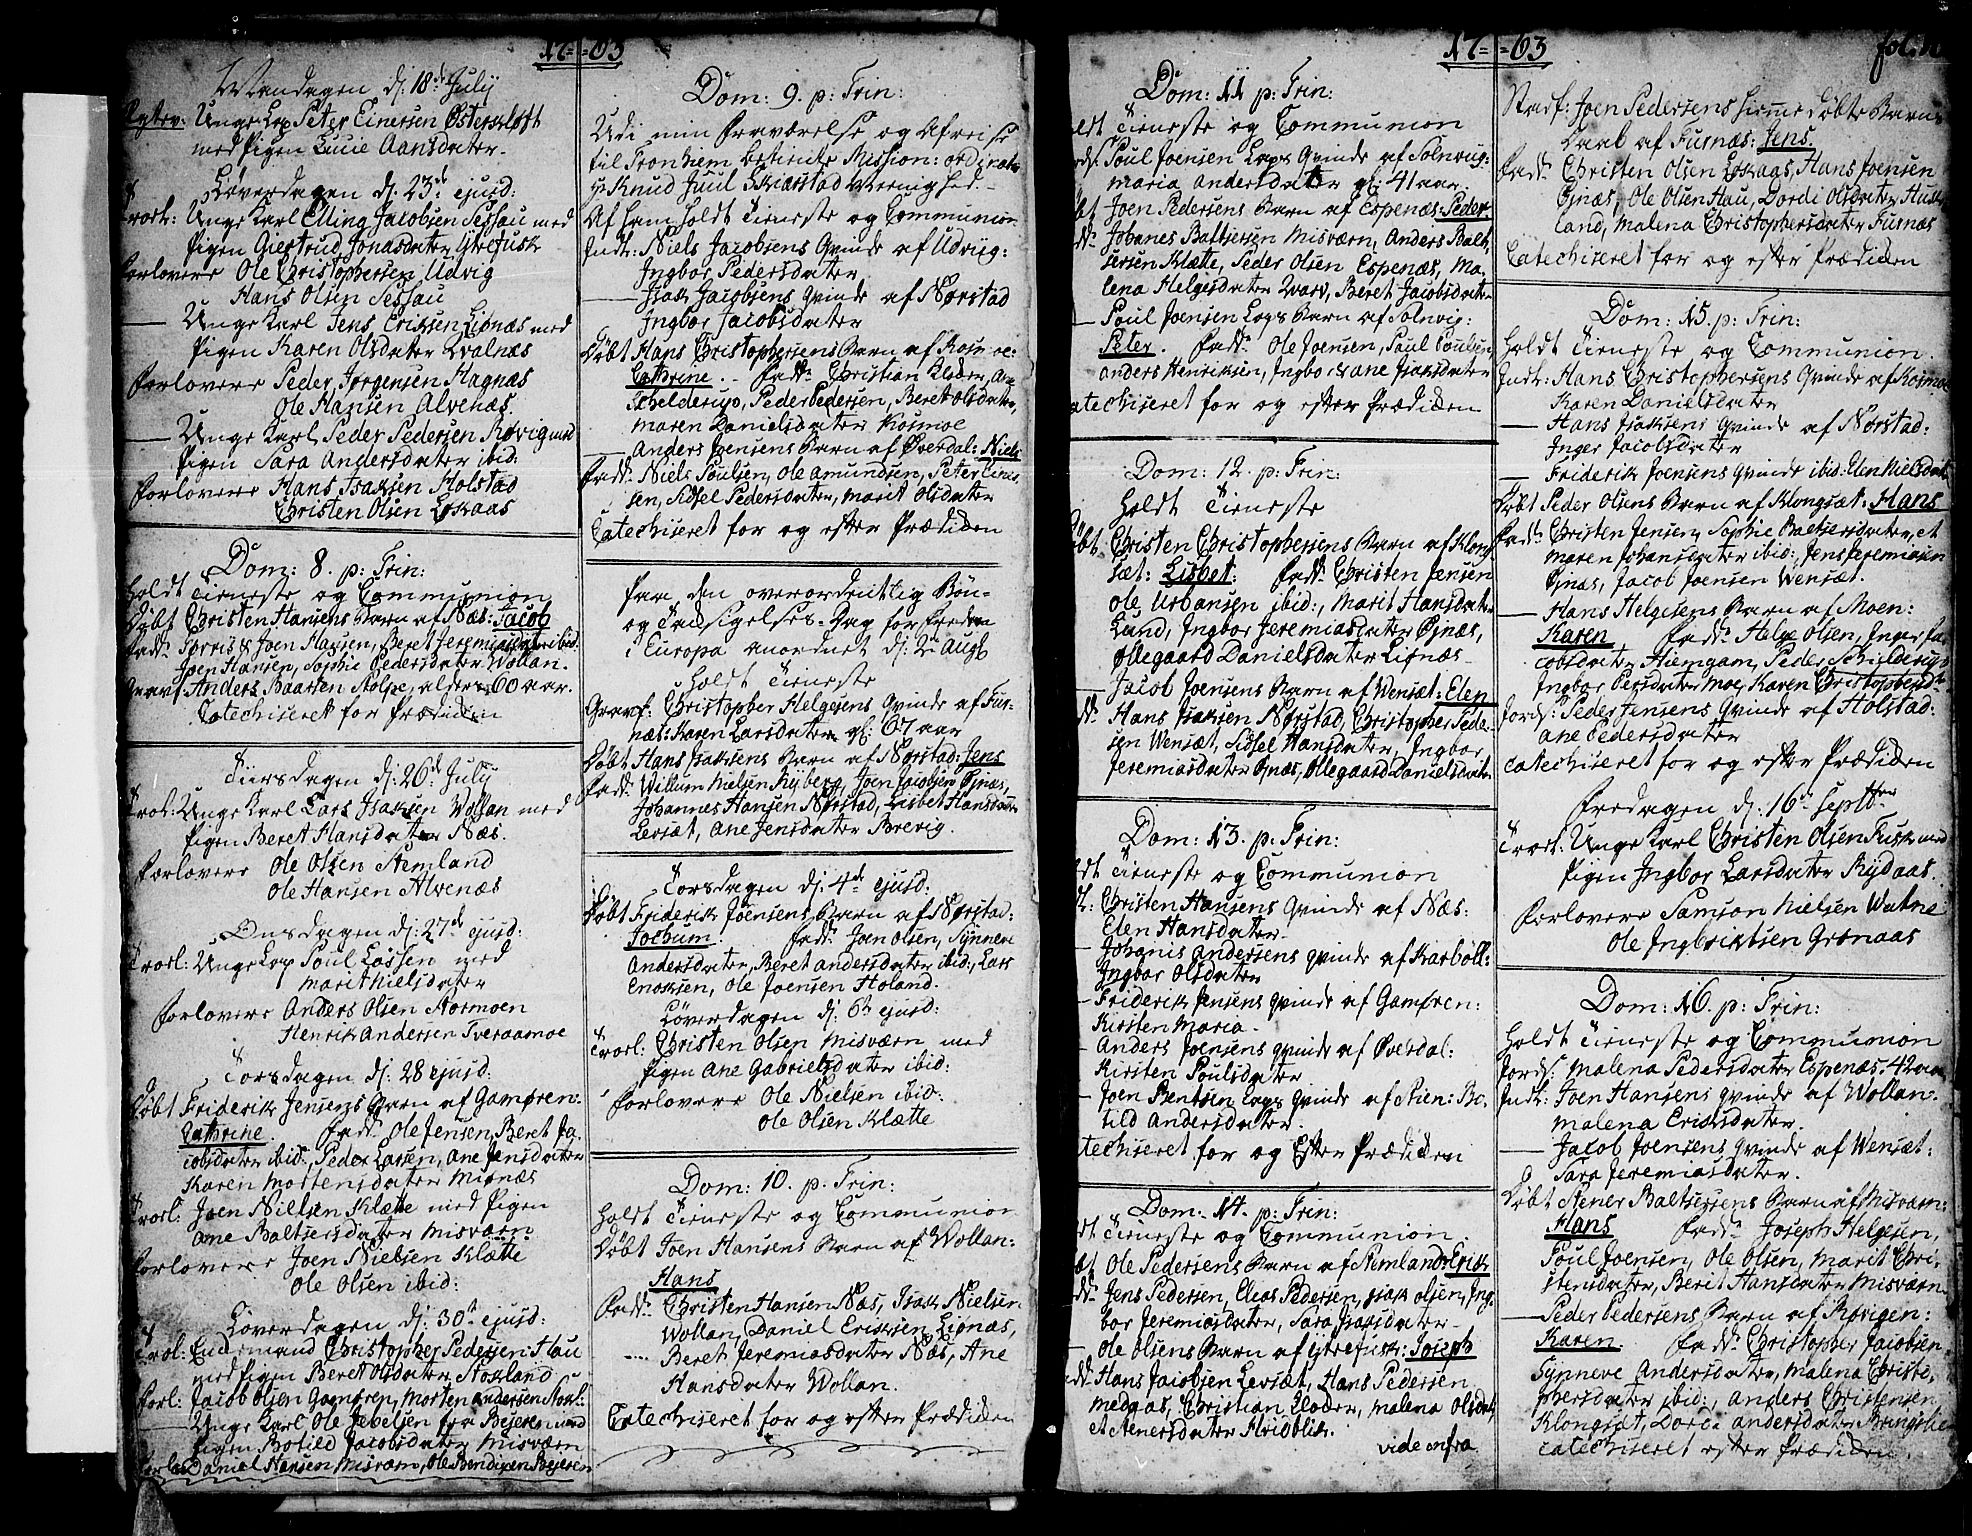 17=63
Mandagen dj: 18de July
Unge Lap Peter Einersen Østerkløft
med Pigen Lucie Aansdater.
Løverdagen dj. 23de ejusd:
Trorl: Unge Karl Elling Jacobsen Sessau med
Pigen Giertrud Jonasdater Ytrefusk
Forlovere Ole Christophersen Udvig
Hans Olsen Sessau
— Unge Karl Jens Eriksen Lisnæs med
Pigen Karen Olsdater Qvalnæs
Forlovere Peder Jørgensen Hagnæs
Ole Hansen Alvenæs.
— Unge Karl Peder Pedersen Køvig med
Pigen Sara Andersdater ibid:
Forlovere Hans Isaksen Holstad
Christen Olsen Løkaas
Dom: 8. p: Trin:
Holdt Tieneste og Communion
Døbt Christen Hansens Barn af Næs: Jacob
Fadd: Joen Hansen, Beret Jeremiasdater ibid:
Joen Hansen, Sophie Pedersdater Wollan.
Gravf: Anders Baarsen Stolpe, alder 60 aar.
Catechiseret for Prædiken
Tiersdagen dj: 26de July
Trol: Unge Karl Lars Isaksen Wollan med
Pigen Beret Hansdater Næs.
Forlovere Ole Olsen Nemland
Ole Hansen Alvenæs
Onsdagen dj: 27de ejusd:
Trorl: Unge Lap Poul Lassen med
Marit Nielsdater
Forlovere Anders Olsen Stormoen
Henrik Andersen Tveraamoe
Torsdagen dj. 28 ejusd:
Døbt Friderik Jensens Barn af Gamøren:
Cathrine. Fadd: Ole Jensen, Beret Ja-
cobsdater ibid:, Peder Larsen, Ane Jensdater
Karen Mortensdater Misnæs
Trorl: Joen Nielsen Klætte med Pigen
Ane Baltsersdater Misværn
Forlovere Joen Nielsen Klætte
Ole Olsen ibid:
Løverdagen dj: 30te ejusd:
Trol: Enkemand Christopher Pedersen Hau
med Pigen Beret Olsdater Stokland
Forl: Jacob Olsen Gamøren, Morten Andersen
— Unge Karl Ole Jebelsen fra Bejeren med
Pigen Botild Jacobsdater Misværn
Forl: Daniel Hansen Misværn, Ole Bendixen Bejeren
Dom: 9. p: Trin:
Udi min Fraværelse og Afreise
til Tronhiem betiente Mission: ordinar:
Hr Knud Juul Skiærstad Menighed.
Af ham holdt Tieneste og Communion
Indt: Niels Jacobsens Qvinde af Udviig:
Ingbor Pedersdater
— Isak Jacobsens Qvinde af Nørstad
Ingbor Jacobsdater
Døbt Hans Christophersens Barn af Kosmoe:
Cathrine. Fadd: Christian Kløder, An:
Schelderup, Peder Pedersen, Beret Olsdater,
Maren Danielsdater Kosmoe
— Anders Joensens Barn af Øverdal: Niels
Fadd: Niels Poulsen, Ole Amundsen, Peter Einer-
sen, Sidsel Pedersdater, Marit Olsdater
Catechiseret for og efter Prædiken
Paa den overordentlig Bøn-
og Taksigelses-Dag for Freden
i Europa anordnet dj: 2de Augt
holdt Tieneste
Gravf: Christopher Helgesens Qvinde af Fur-
næs: Karen Larsdater gl: 67 aar
Døbt Hans Isaksens Barn af Nørstad: Jens
Fadd: Willum Nielsen Nyberg, Joen Jacobsen Øjnæs,
Johannes Hansen Nørstad, Lisbet Hansdater
Levsæt, Ane Jensdater Brevig.
Torsdagen dj. 4de ejusd:
Døbt Friderik Joensens Barn af Nørstad:
Jochum. Fadd: Joen Olsen, Synnere
Andersdater, Beret Andersdater ibid:, Lars
Enoksen, Ole Joensen Holand.
Løverdagen dj. 6te ejusd:
Trorl: Christen Olsen Misværn med
Pigen Ane Gabrielsdater ibid:
Forlovere Ole Nielsen ibid:
Ole Olsen Klætte
Dom: 10. p. Trin:
Holdt Tieneste og Communion
Døbt Joen Hansens Barn af Wollan:
Hans
Fadd: Christen Hansen Næs, Isak Nielsen
Wollan, Daniel Eriksen Lisnæs,
Beret Jeremiasdater Næs, Ane
Hansdater Wollan.
Catechiseret for og efter Prædiken
17=63
Dom: 11 p: Trin:
oldt Tieneste og Communion
Poul Joensen Laps Qvinde af Solnvig:
Maria Andersdater gl: 41 aar.
Joen Pedersens Barn af Espenæs: Peder
Johanes Baltsersen Misværn, Anders Balt-
sersen Klætte, Peder Olsen Espenæs, Ma-
lena Helgesdater Qvarv, Beret Jacobsdater
— Poul Joensen Laps Barn af Solnvig:
Peter. Fadd: Ole Joensen, Paul Poulsen,
Anders Henriksen, Ingbor & Ane Isaksdater
atechiseret for og efter Prædiken
Dom: 12. p: Trin:
holdt Tieneste
Christen Christophersens Barn af Klong-
sæt: Lisbet: Fadd: Christen Jensen
Ole Urbansen ibid:, Marit Hansdater
Lund, Ingbor Jeremiasdater Øjnæs,
Ollegaard Danielsdater Lisnæs
— Jacob Joensens Barn af Wensæt: Elen
Hans Isaksen Nørstad, Christopher Peder-
sen Wensæt, Sidsel Hansdater, Ingbor
Jeremiasdater Øjnæs, Ollegaard Danielsdater
Dom: 13. p: Trin:
Tieneste og Communion
Christen Hansens Qvinde af Næs:
Elen Hansdater
— Johanis Andersens Qvinde af Karbøll:
Ingbor Olsdater
— Friderik Jensens Qvinde af Gamøren:
Kirsten Maria.
— Anders Joensens Qvinde af Øverdal:
Kirsten Poulsdater
— Joen Bentsen Laps Qvinde af Stien: Bo-
tild Andersdater.
atechiseret for og Efter Prædiken
Dom: 14. p: Trin:
Tieneste og Communion
Ole Pedersens Barn af Nemland: Erik
Jens Pedersen, Elias Pedersen, Isak Olsen, Ing-
bor Jeremiasdater, Sara Isaksdater
— Ole Olsens Barn af Ytrefusk: Joseph
Hans Jacobsen Levsæt, Hans Pedersen
Medaas, Christian Kloder, Malena Olsdat:
et Stenersdater Hridblik.
vide infra
fol.
Staf: Joen Pedersens hieme døbte Barns
Daab af Furnæs: Jens.
Fadd: Christen Olsen Løkaas, Hans Joensen
Øjnæs, Ole Olsen Hau, Dordi Olsdater Hus-
land, Malena Christophersdater Furnæs
Catechiseret for og efter Prædiken
Dom: 15. p: Trin:
Holdt Tieneste og Communion.
Indt: Hans Christophersens Qvinde af Kosmoe
Karen Danielsdater
— Hans Isaksens Qvinde af Nørstad:
Inger Jacobsdater
— Friderik Joensens Qvinde ibid: Elen Nielsdat
Døbt Peder Olsens Barn af Klongsæt: Hans
Fadd: Christen Jensen, Sophie Baltsersdater, et
Maren Johansdater ibid:, Jens Jeremiasen
Øjnæs, Jacob Joensen Wensæt.
— Hans Helgesens Barn af Moen:
Karen Fadd: Helge Olsen, Inger Ja-
cobsdater Hiemgam, Peder Schjelderup
Ingbor Persdater Moe, Karen Christophersd:
Jordf: Peder Jensens Qvinde af Holstad:
Ane Pedersdater
Catechiseret for og efter Prædiken
Fredagen dj. 16de Septbr
Trorl: Unge Karl Christen Olsen Fusk med
Pigen Ingbor Larsdater Rydaas.
Forlovere Samson Nielsen Watne
Ole Ingbrikhtsen Grønaas
Dom: 16. p: Trin:
Holdt Tieneste og Communion
Jordf: Malena Pedersdater Espenæs. 42 aar
Indt: Joen Hansens Qvinde af Wollan:
Malena Eriksdater.
— Jacob Joensens Qvinde af Wensæt:
Sara Jeremiasdater.
Døbt Stener Baltsersens Barn af Misværn:
Hans Fadd: Joseph Helgesen,
Poul Joensen, Ole Olsen, Marit Chri-
stensdater, Berit Hansdater Misværn
— Peder Pedersens Barn af Køvigen:
Karen. Fadd: Christopher Jacobsen,
Synneve Andersdater, Malena Christo-
phersdater ibid:, Anders Christensen
Klongsæt, Dorea Andersdater Bringslie
Catechiseret efter Prædiken.